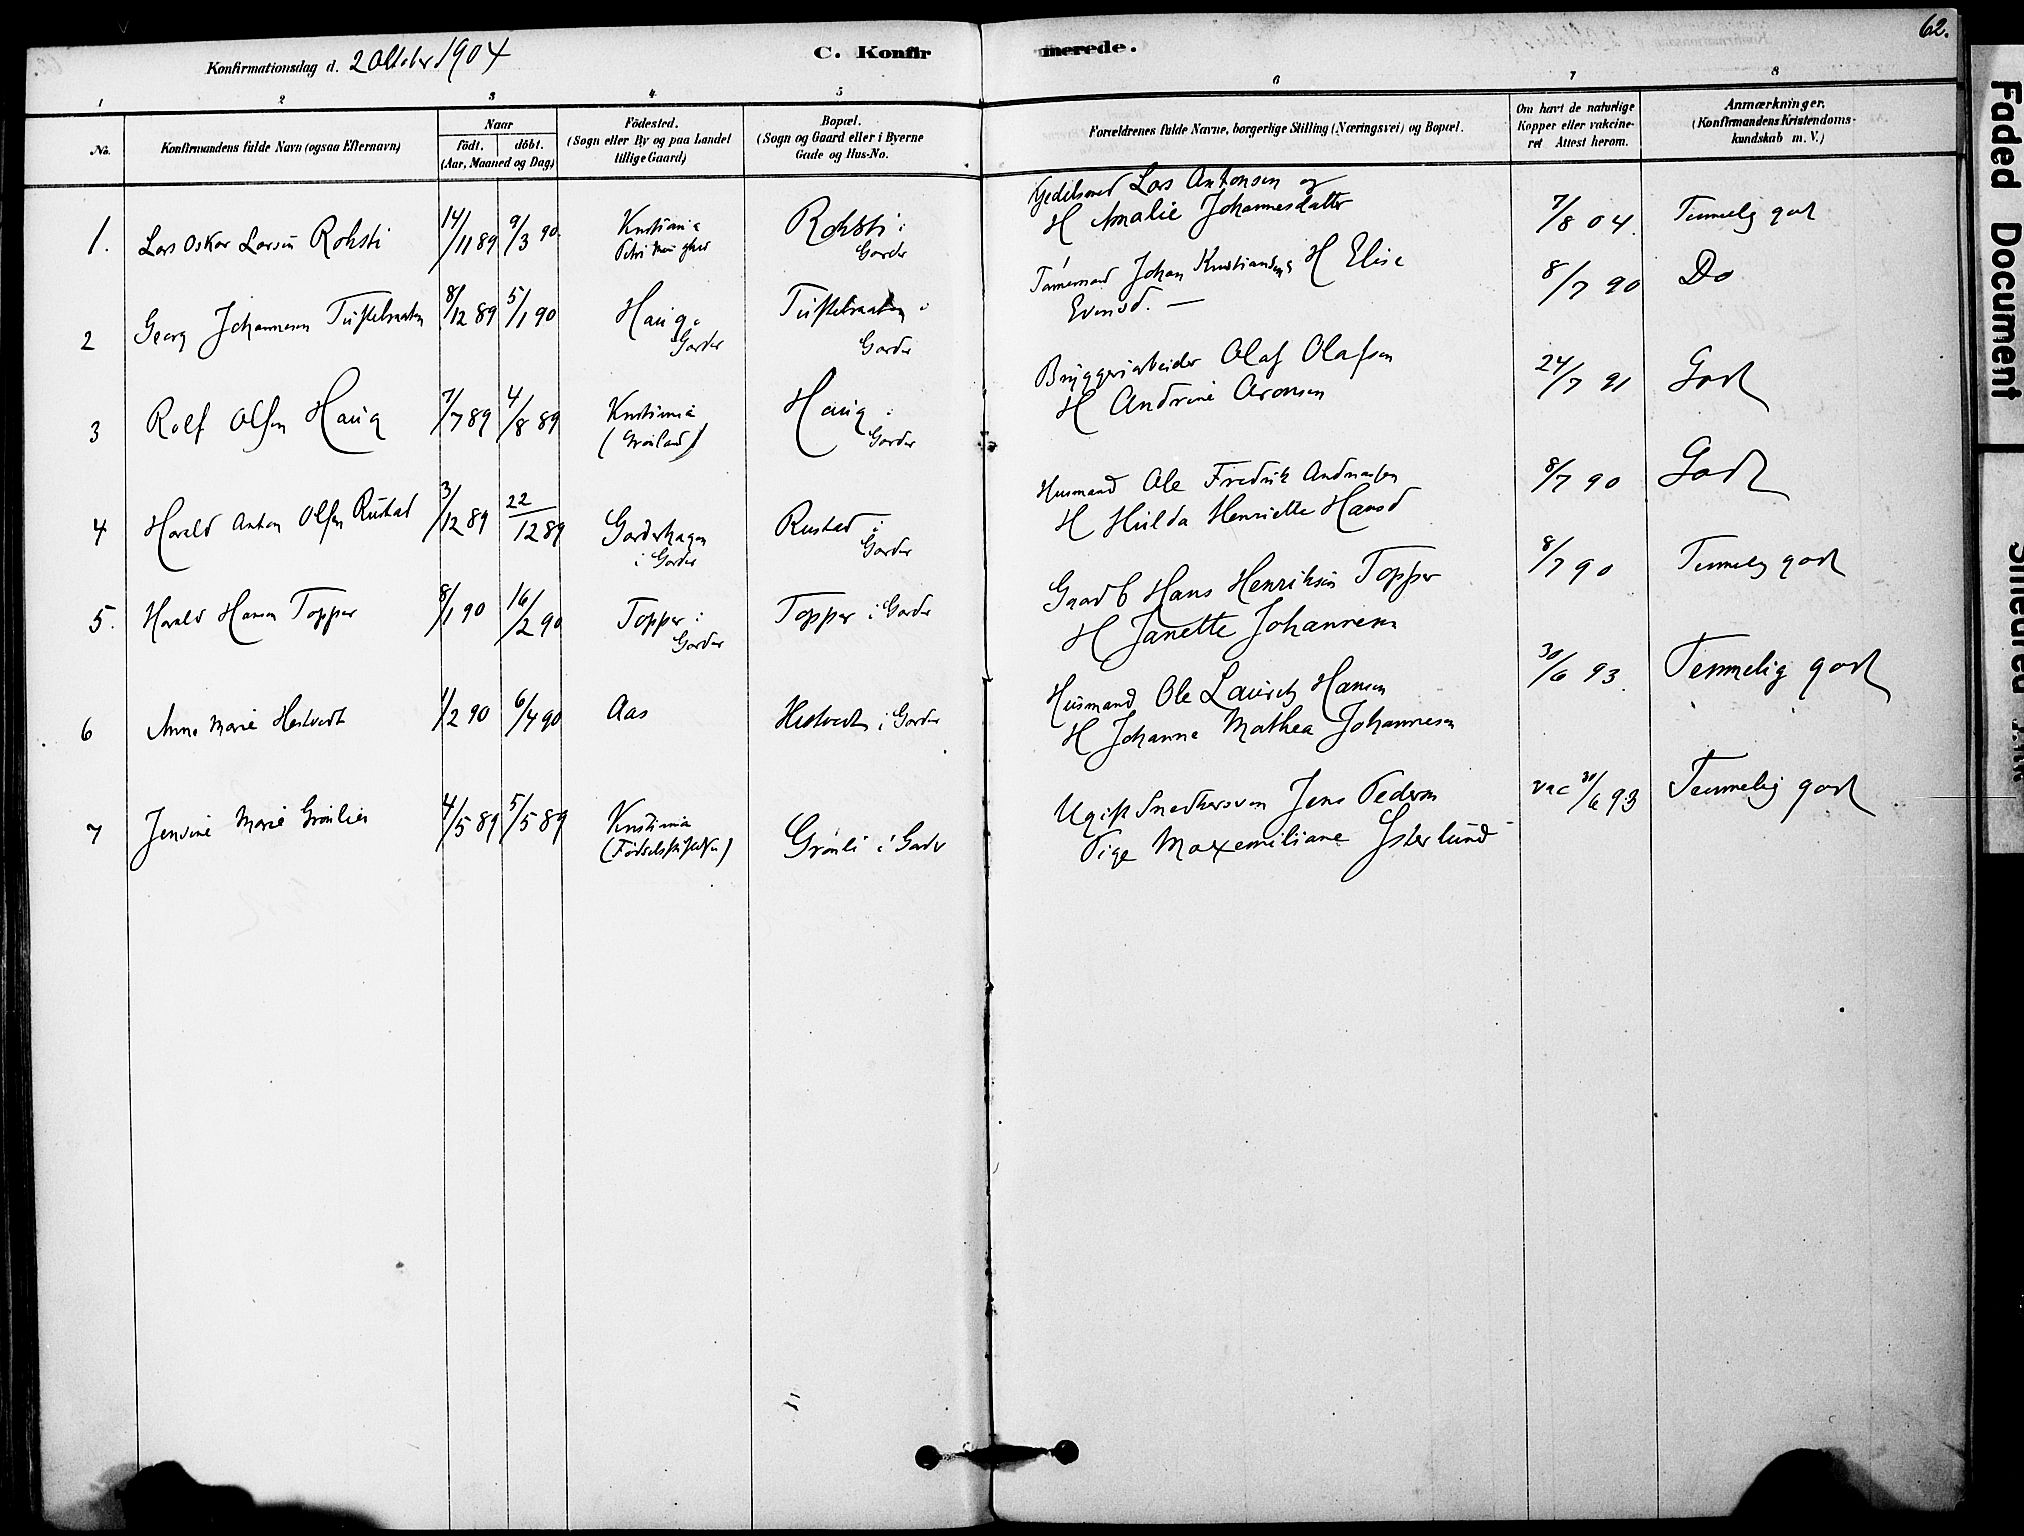 62.
Konfirmationsdag d. 2 Oktober 1904
C. Konfirmerede.
1 2 3 4 5 6 7 8
No.
Konfirmandens fulde Navn (ogsaa Efternavn)
Naar
født. døbt.
(Aar, Maaned og Dag)
Fødested.
(Sogn eller By og paa Landet
tillige Gaard)
Bopæl.
(Sogn og Gaard eller i Byerne
Gade og Hus-No.
Forældrenes fulde Navne, borgerlige Stilling (Næringsvei) og Bopæl.
Om havt de naturlige
Kopper eller vakcine-
ret Attest herom.
Anmærkninger.
(Konfirmandens Kristendoms-
kundskab m. V.)
1. Lars Oskar Larsen Roksti 14/11 89 9/3 90. Kristiania
Petri
Roksti i
Garder
Lars Antonsen og
H Amalie Johannesdatter
7/8 04. Temmelig godt
2 Georg Johannesen 8/12 89 5/1 90 Haug i
Garder
i
Garder
Johan Kristiansen H Elise
Evensd. —
8/7 90 Do
3 Rolf Olsen Haug 7/7 89 4/8 89 Kristiania
(Grønland)
Haug i
Garder
Bryggeriarbeider Olaf Olafsen
H Andrine Aronsen
24/7 91 Godt
4 Harald Anton Olsen Rustad 3/12 89 22/12 89 Garderhagen
i Garder
Rustad i
Garder
Husmand Ole Fredrik Andreasen
H Hulda Henriette Hansd
8/7 90 Godt
5. Harald Hansen Topper 8/1 90 16/2 90 Topper i
Garder
Topper i Garder
Gaardb Hans Henriksen Topper
H Janette Johannesen
8/7 90 Temmelig godt
6 Anna Marie Hestvedt 1/2 90 6/4 90 Aas
Hestvedt i Garder
Husmand Ole Lauritz Hansen
H Johanne Mathea Johannesen
30/6 93. Temmelig godt
7 Jensine Marie Grønlien 4/5 89 5/5 89 Kristiania
(Fødselsstiftelsen)
Grønli i Garder
Ugift Snedkersvend Jens Pedersen
Pige Maxemiliane Østerlund
vac 30/6 93 Temmelig godt
Faded Document